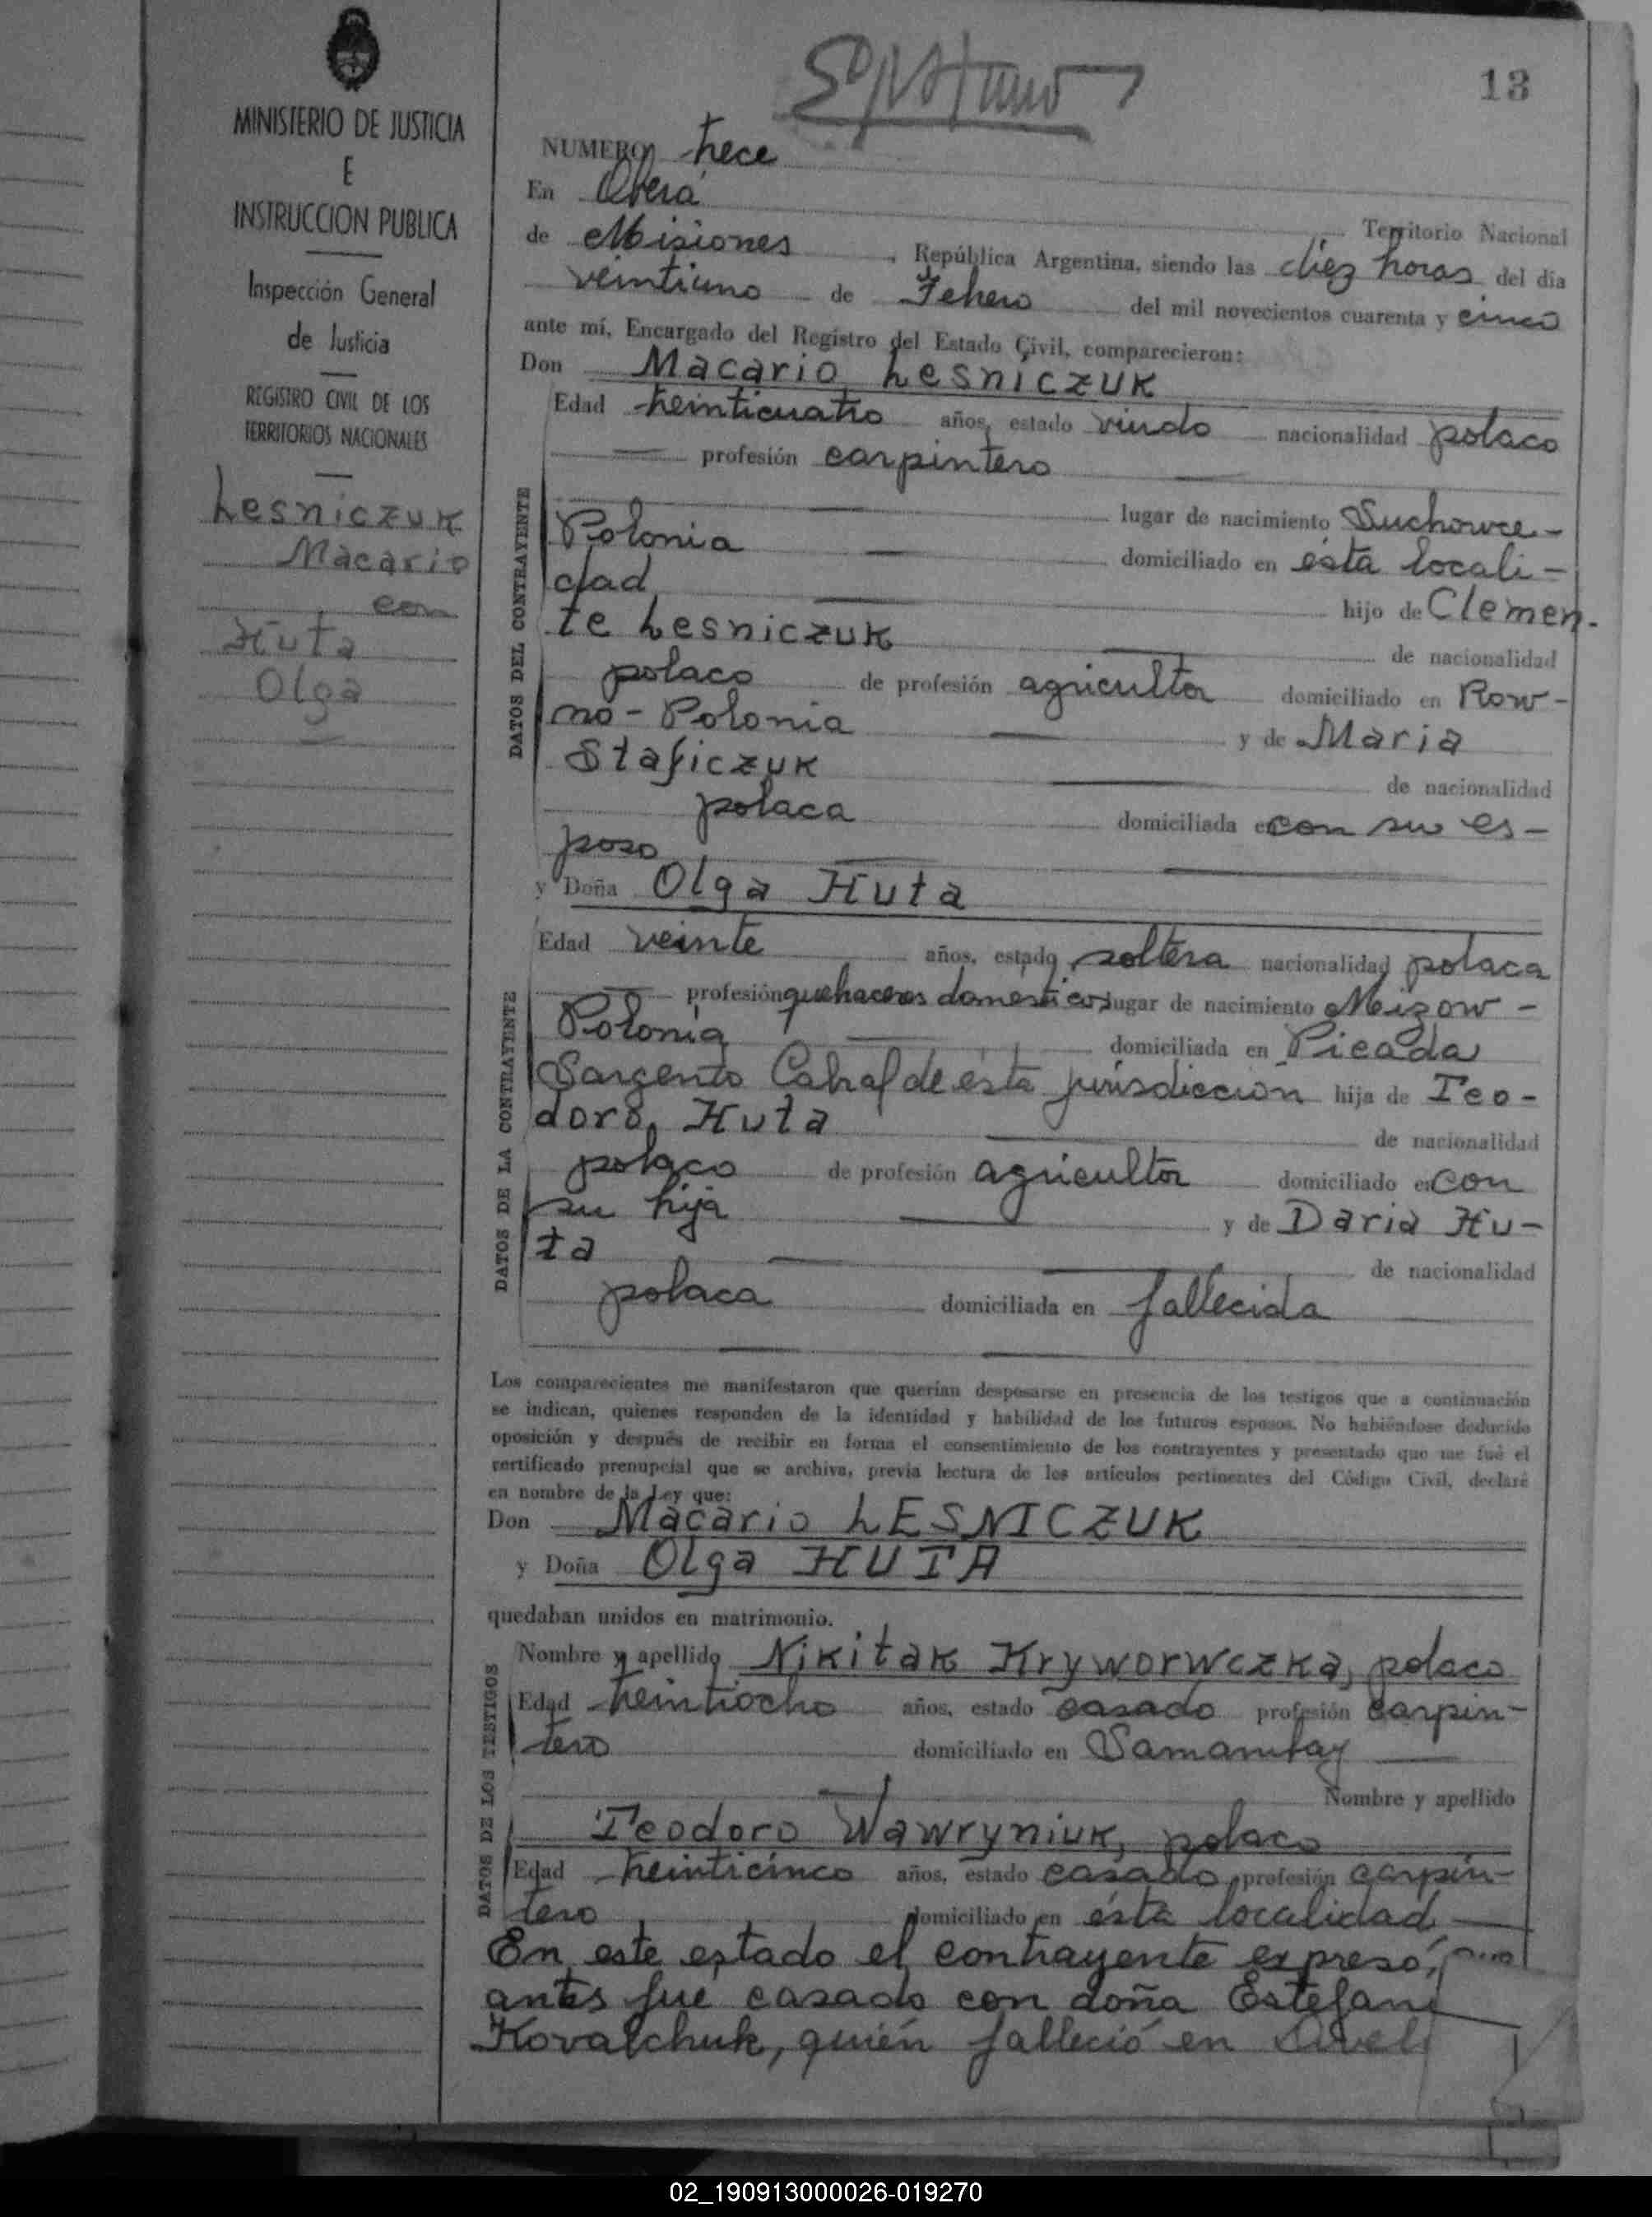 MINISTERIO DE JUSTICIA
E
INSTRUCCION PUBLICA
Inspección General
de Justicia
REGISTRO CIVIL DE LOS
TERRITORIOS NACIONALES
Lesniczuk
Macario
con
Huta
Olga
13
NUMERO trece
En Oberá
Territorio Nacional
de Misiones, República Argentina, siendo las diez horas del día
veintiuno de Febrero del mil novecientos cuarenta y cinco
ante mí, Encargado del Registro del Estado Civil, comparecieron:
Don Macario Lesniczuk
Edad treinticuatro años, estado viudo nacionalidad polaco
profesión carpintero
DATOS DEL CONTRAYENTE
lugar de nacimiento Suchowce-
Polonia domiciliado en ésta locali-
dad hijo de Clemen-
te Lesniczuk de nacionalidad
polaco de profesión agricultor domiciliado en Row-
no-Polonia y de Maria
Stasiczuk de nacionalidad
polaca domiciliada en con su es-
poso
y Doña Olga Huta
Edad veinte años, estado soltera nacionalidad polaca
DATOS DE LA CONTRAYENTE
profesión quehaceres domesticos lugar de nacimiento Meizow-
Polonia domiciliada en Picada
Sargento Cabral de ésta jurisdicción hija de Teo-
doro Huta de nacionalidad
polaco de profesión agricultor domiciliado en con
su hija y de Daria Hu-
ta de nacionalidad
polaca domiciliada en fallecida
Los comparecientes me manifestaron que querían desposarse en presencia de los testigos que a continuación
se indican, quienes responden de la identidad y habilidad de los futuros esposos. No habiéndose deducido
oposición y después de recibir en forma el consentimiento de los contrayentes y presentado que me fué el
certificado prenupcial que se archiva, previa lectura de los artículos pertinentes del Código Civil, declaré
en nombre de la Ley que:
Don Macario LESNICZUK
y Doña Olga HUTA
quedaban unidos en matrimonio.
DATOS DE LOS TESTIGOS
Nombre y apellido Nikitak Kryworwczka, polaco
Edad treintiocho años, estado casado profesión carpin-
tero domiciliado en Samambay
Nombre y apellido
Teodoro Wawryniuk, polaco
Edad treinticinco años, estado casado, profesión carpin-
tero domiciliado en ésta localidad
En este estado el contrayente expresó,
antes fue casado con doña Estefani
Kovalchuk, quién falleció en
02_190913000026-019270